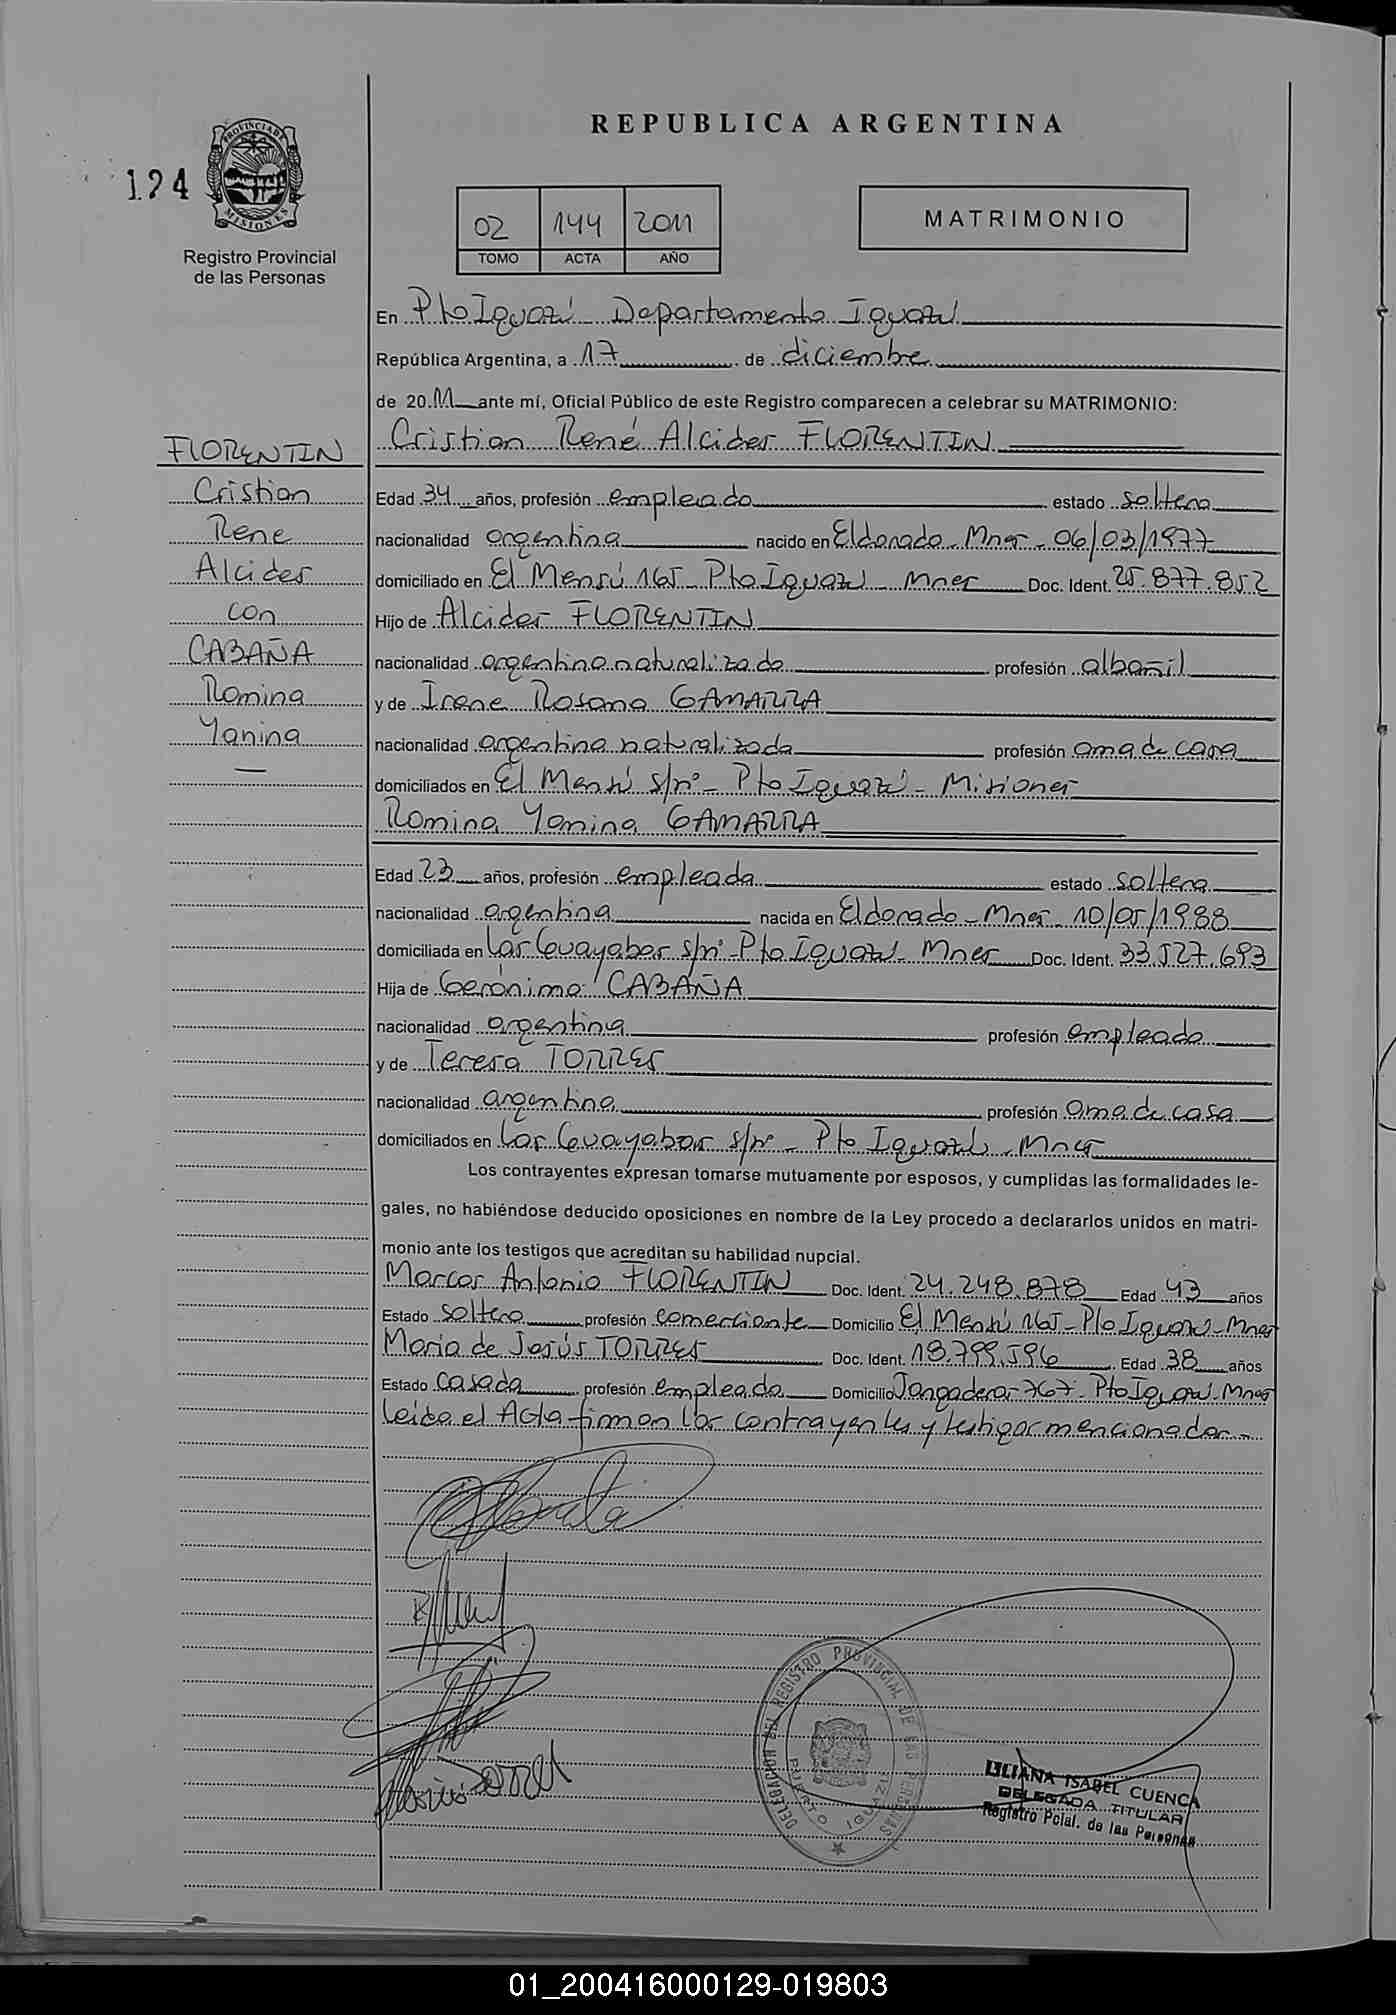 REPUBLICA ARGENTINA
124
PROVINCIA DE MISIONES
Registro Provincial
de las Personas
02 144 2011
TOMO ACTA AÑO
MATRIMONIO
En Pto Iguazú Departamento Iguazú
República Argentina, a 17 de diciembre
de 2011 ante mí, Oficial Público de este Registro comparecen a celebrar su MATRIMONIO:
Cristian René Alcides FLORENTIN
FLORENTIN
Cristian
Rene
Alcides
con
CABAÑA
Romina
Yanina
Edad 34 años, profesión empleado estado soltero
nacionalidad argentina nacido en Eldorado - Mnes - 06/03/1977
domiciliado en El Mensú 165 - Pto Iguazú - Mnes Doc. Ident. 25.877.852
Hijo de Alcides FLORENTIN
nacionalidad argentino naturalizado profesión albañil
y de Irene Rosana GAMARRA
nacionalidad argentina naturalizada profesión ama de casa
domiciliados en El Mensú s/nº - Pto Iguazú - Misiones
Romina Yanina GAMARRA
Edad 23 años, profesión empleada estado soltera
nacionalidad argentina nacida en Eldorado - Mnes - 10/05/1988
domiciliada en Los Guayabos s/nº - Pto Iguazú - Mnes Doc. Ident. 33.527.693
Hija de Gerónimo CABAÑA
nacionalidad argentina profesión empleado
y de Teresa TORRES
nacionalidad argentina profesión ama de casa
domiciliados en Los Guayabos s/nº - Pto Iguazú - Mnes
Los contrayentes expresan tomarse mutuamente por esposos, y cumplidas las formalidades le-
gales, no habiéndose deducido oposiciones en nombre de la Ley procedo a declararlos unidos en matri-
monio ante los testigos que acreditan su habilidad nupcial.
Marcos Antonio FLORENTIN Doc. Ident. 24.248.878 Edad 43 años
Estado soltero profesión comerciante Domicilio El Mensú 165 - Pto Iguazú - Mnes
Maria de Jesús TORRES Doc. Ident. 18.799.596 Edad 38 años
Estado casada profesión empleada Domicilio Jangaderos 767 - Pto Iguazú - Mnes
Leida el Acta firman los contrayentes y testigos mencionados -
DELEGACION DEL REGISTRO PROVINCIAL DE LAS PERSONAS
PUERTO IGUAZU
LILIANA ISABEL CUENCA
DELEGADA TITULAR
Registro Pcial. de las Personas
01_200416000129-019803